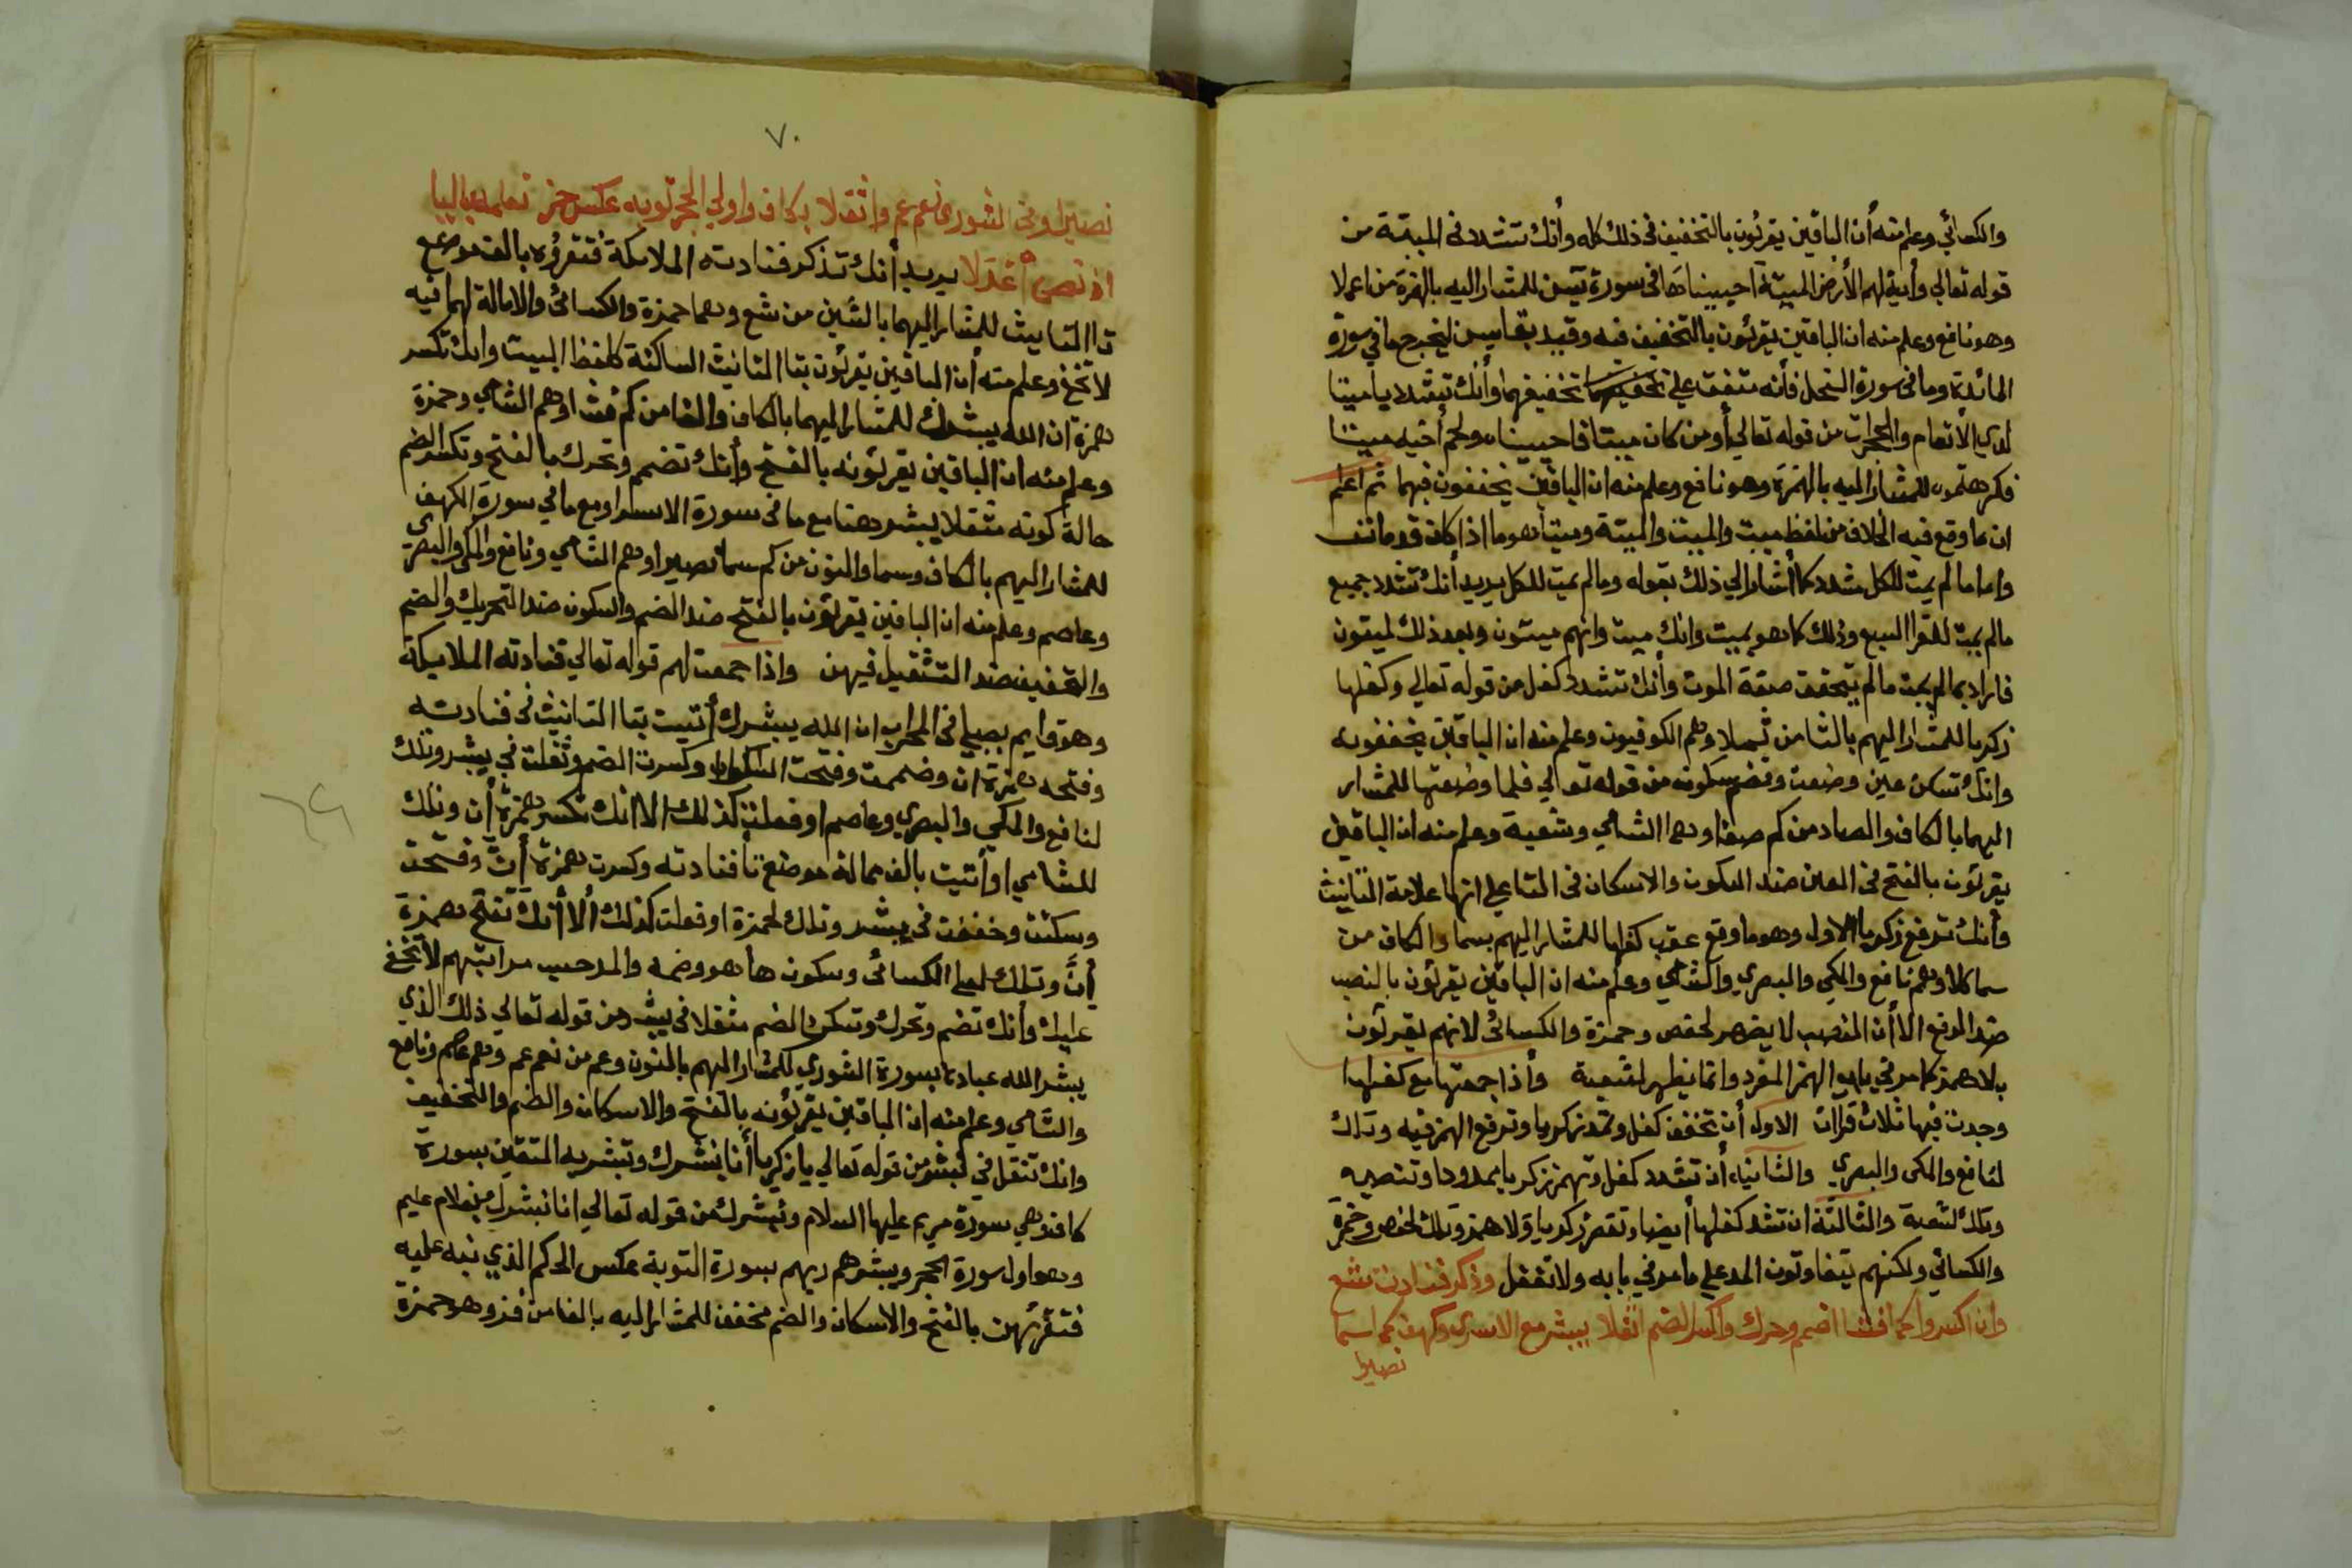 والكسائي وعلم منه أن الباقين يقرئون بالتخفيف في ذلك كله وأنك تشدد في الميتة من
قوله تعالي وأية لهم الأرض الميتة احييناها في سورة يس للمشار اليه بالهمزة من اعملا
وهو نافع وعلم منه ان الباقين يقرئون بالتخفيف فيه وقيد بقا يس ليخرج ما في سورة
المائدة وما في سورة النحل فأنه متفق علي تخفيفهما وأنك تشدد يا ميتا
لدي الأنعام والحجرات من قوله تعالي أومن كان ميتا فاحييناه ولحم أخيه ميتا
فكرهتموه للمشار اليه بالهمزة وهو نافع وعلم منه ان الباقين يخففون فيهما ثم اعلم
ان ما وقع فيه الخلاف من لفظ ميت والميت والميتة وميتا هو ما اذا كان قد مات
واما ما لم يمت للكل مشدد كما أشار الي ذلك بقوله وما لم يمت للكل يريد أنك تشدد جميع
ما لم يمت للقرا السبع وذلك كما هو بميت وانك ميت وانهم ميتون وبعد ذلك لميتون
فاراد بما لم يمت ما لم يتحقق صفة الموت وأنك تشدد كفل من قوله تعالي وكفلها
زكريا للمشار اليهم بالثا من ثملا وهم الكوفيون وعلم منه ان الباقين يخففونه
وانك تسكن عين وضعت وتضم سكونه من قوله تعالي فلما وضعتها للمشار
اليهما بالكاف والصاد من كم صفا وهما الشامي وشعبة وعلم منه ان الباقين
يقرئون بالفتح في العين ضد السكون والاسكان في التا علي انها علامة التانيث
وأنك ترفع زكريا الاول وهو ما وقع عقب كفلها للمشار اليهم بسما والكاف من
سما كلا وهم نافع والمكي والبصري والشامي وعلم منه ان الباقين يقرئون بالنصب
ضد الرفع الا أن النصب لا يضهر لحفص وحمزة والكسائي لانهم يقرئون
بلا همز كما مر في باب الهمز المفرد وانما يظهر لشعبة وأذا جمعتها مع كفلها
وجدت فيها ثلاث قرات الاولي أن تخفف كفل وتمد زكريا وترفع الهمز فيه وذلك
لنافع والمكي والبصري والثانية أن تشدد كفل وتهمز زكريا بمدودا وتنصبه
وذلك لشعبة والثالثة ان تشد كفلها أيضا وتقصر زكريا ولا همز وذلك لحفص وحمزة
والكسائي ولكنهم يتفاوتون المد علي ما مر في بابه ولا تغفل وذكر فنادت شع
وان اكسروا كم افشا اضم وحرك واكسر الضم اثقلا يبشر مع الاسري وكهف كم اسما
نصيرا
٧٠
نصيرا وفي الشوري نعم عم واثقلا بكاف واولي الحجر توبه عكس حز تعلمه باليا
اذ نص اعدلا يريد أنك تذكر فنادته الملائكة فتقرؤه بالف موضع
تا التانيث للمشار اليهما بالشين من شع وهما حمزة والكسائي والامالة لهما فيه
لا تخف وعلم منه أن الباقين يقرئون بتا التانيث الساكنة كلفظ البيت وانك تكسر
همزة ان الله يبشرك للمشار اليهما بالكاف والفا من كم فشا وهم الشامي وحمزة
وعلم منه ان الباقين يقرئونه بالفتح وأنك تضم وتحرك بالفتح وتكسر الضم
حالة كونه مثقلا يبشر هنا مع ما في سورة الاسرا ومع ما في سورة الكهف
للمشار اليهم بالكاف وسما والنون من كم سما نصيرا وهم الشامي ونافع والمكي والبصري
وعاصم وعلم منه ان الباقين يقرئون بالفتح ضد الضم والسكون ضد التحريك والضم
والتخفيف ضد التثقيل فيهن واذا جمعت لهم قوله تعالي فنادته الملائكة
وهو قايم يصلي في المحراب ان الله يبشرك أتيت بتا التانيث في فنادته
وفتحه همزة ان وضممت وفتحت السكون وكسرت الضم وثقلت في يبشر وذلك
لنافع والمكي والبصري وعاصم او فعلت كذلك الا انك تكسر همزة أن وذلك
للشامي او أتيت بالف ممالة موضع تا فنادته وكسرت همزة أن وفتحت
وسكنت وخففت في يبشر وذلك لحمزة او فعلت كذلك ألا أنك تفتح همزة
أن وذلك لعلي الكسائي وسكون ها هو وضمه والمد حسب مراتبهم لا تخف
عليك وأنك تضم وتحرك وتسكن الضم مثقلا في يبشر من قوله تعالي ذلك الذي
يبشر الله عباده بسورة الشوري للمشار اليهم بالنون وعم من نعم عم وهم عاصم ونافع
والشامي وعلم منه ان الباقين يقرئونه بالفتح والاسكان والضم والتخفيف
وانك تثقل في نبشر من قوله تعالي يا زكريا أنا نبشرك وتبشر به المتقين بسورة
كاف وهي سورة مريم عليها السلام ونبشرك من قوله تعالي انا نبشرك بغلام عليم
وهو اول سورة الحجر ويبشرهم ربهم بسورة التوبة عكس الحكم الذي نبه عليه
فتقرئهن بالفتح والاسكان والضم مخفف للمشار اليه بالفا من فز وهو حمزة